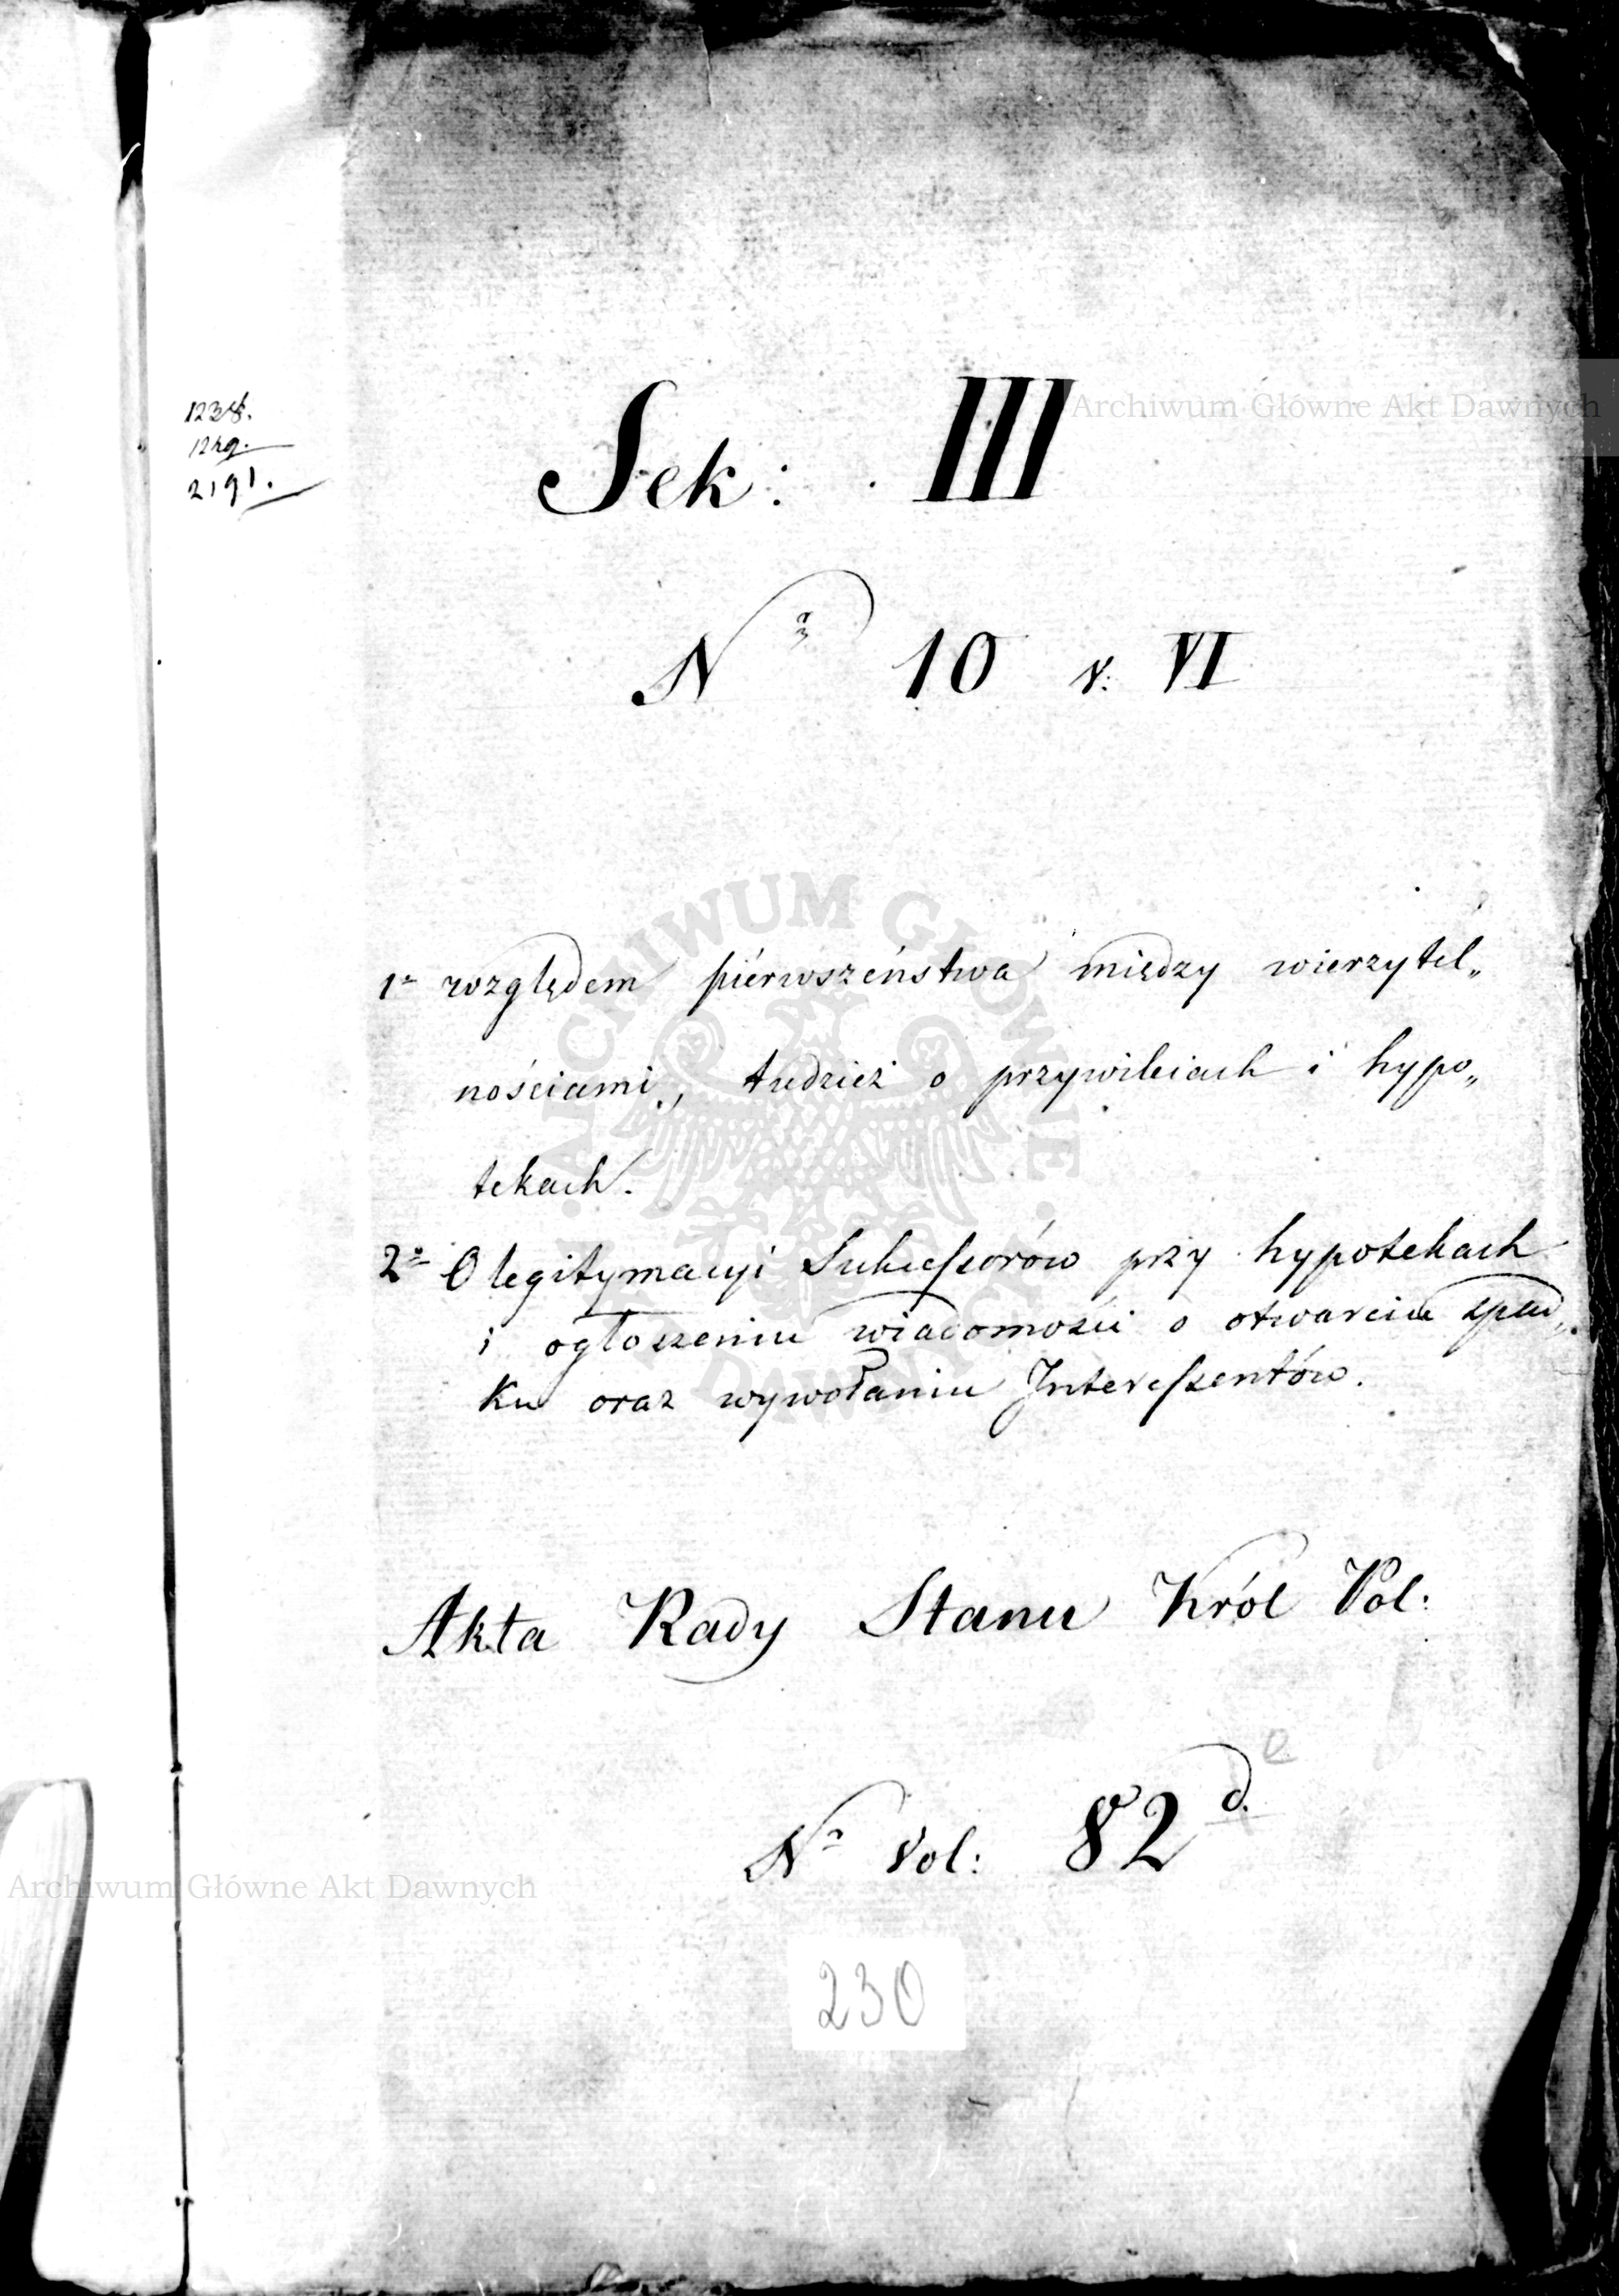 1238.
1249.
2191.
Sek: III
Nr 10 v: VI
1o względem piérwszeństwa między wierzytel„
nościami, tudzież o przywileiach i hypo„
tekach.
2o O legitymacyi Sukcessorów przy hypotekach
i ogłoszeniu wiadomości o otwarciu spad„
ku oraz wywołaniu Interessentów.
Akta Rady Stanu Król Pol:
No Vol: 82 d.
e
230
Archiwum Główne Akt Dawnych
Archiwum Główne Akt Dawnych
ARCHIWUM GŁÓWNE AKT DAWNYCH